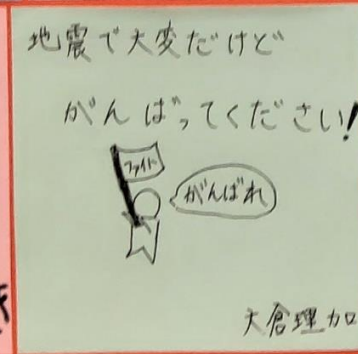 地震で大変だけど
がんばってください!
ファイト
がんばれ
大倉理加